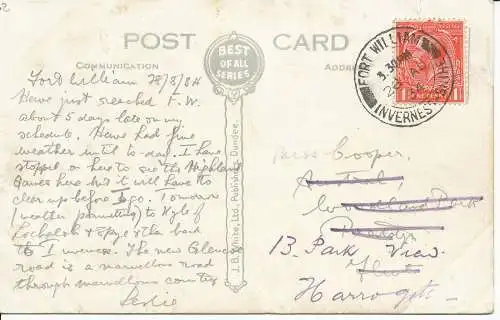 POST CARD
COMMUNICATION
ADDRESS
BEST
OF ALL
SERIES
J.B. White, Ltd., Publishers, Dundee.
FORT WILLIAM
3.30 PM
INVERNESS-SHIRE
Fort William 28/8/34
Have just reached F.W.
about 5 days late on my
schedule. Have had fine
weather until to-day. I have
stopped on here to see the Highland
Games here but it will have to
clear up before I go. Tomorrow
(weather permitting) to Kyle of
Lochalsh & Skye & then back
to Inverness. The new Glencoe
road is a marvellous road
through marvellous country
Leslie
Miss Cooper,
13. Park View
Harrogate